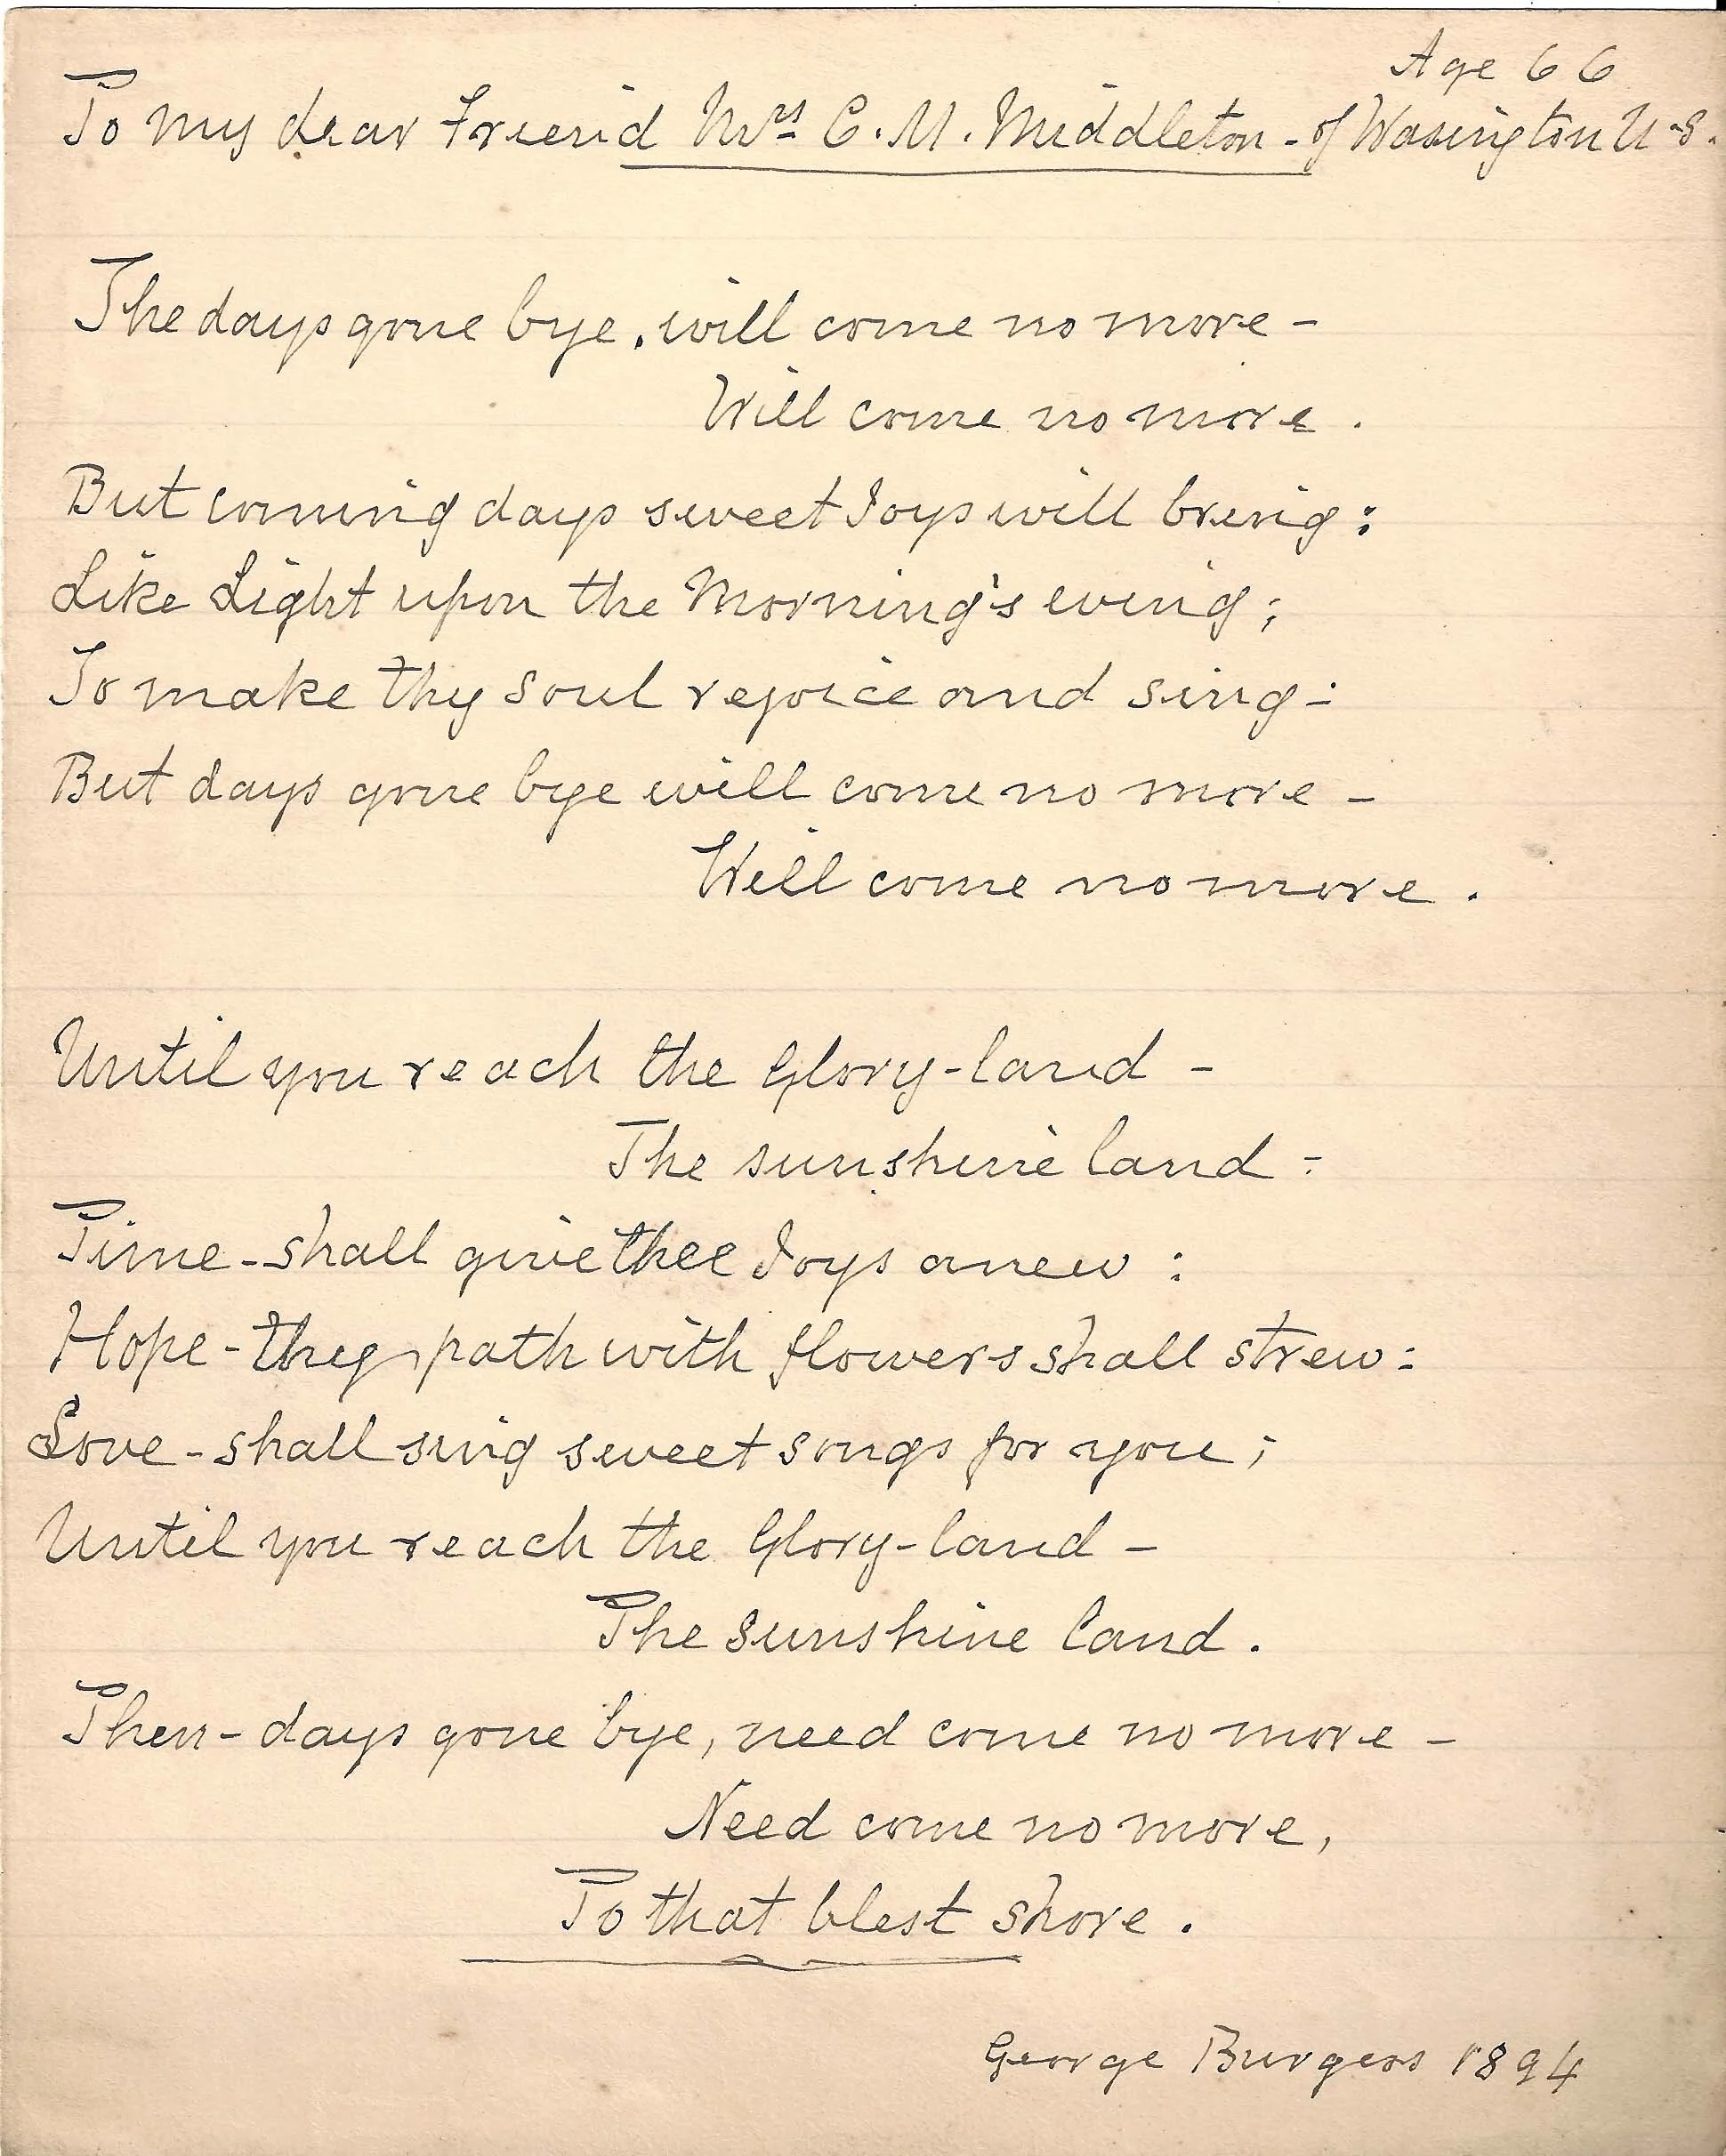 Age 66
To my dear Friend Mrs C. M. Middleton - of Wasington U-S.
The days gone bye, will come no more -
Will come no more.
But coming days sweet Joys will bring:
Like Light upon the Morning's wing;
To make thy soul rejoice and sing:
But days gone bye will come no more -
Will come no more.
Until you reach the Glory-land -
The sunshine land:
Time - shall give thee Joys anew:
Hope - thy path with flowers shall strew:
Love - shall sing sweet songs for you;
Until you reach the Glory-land -
The Sunshine land.
Then - days gone bye, need come no more -
Need come no more,
To that blest shore.
George Burgess 1894